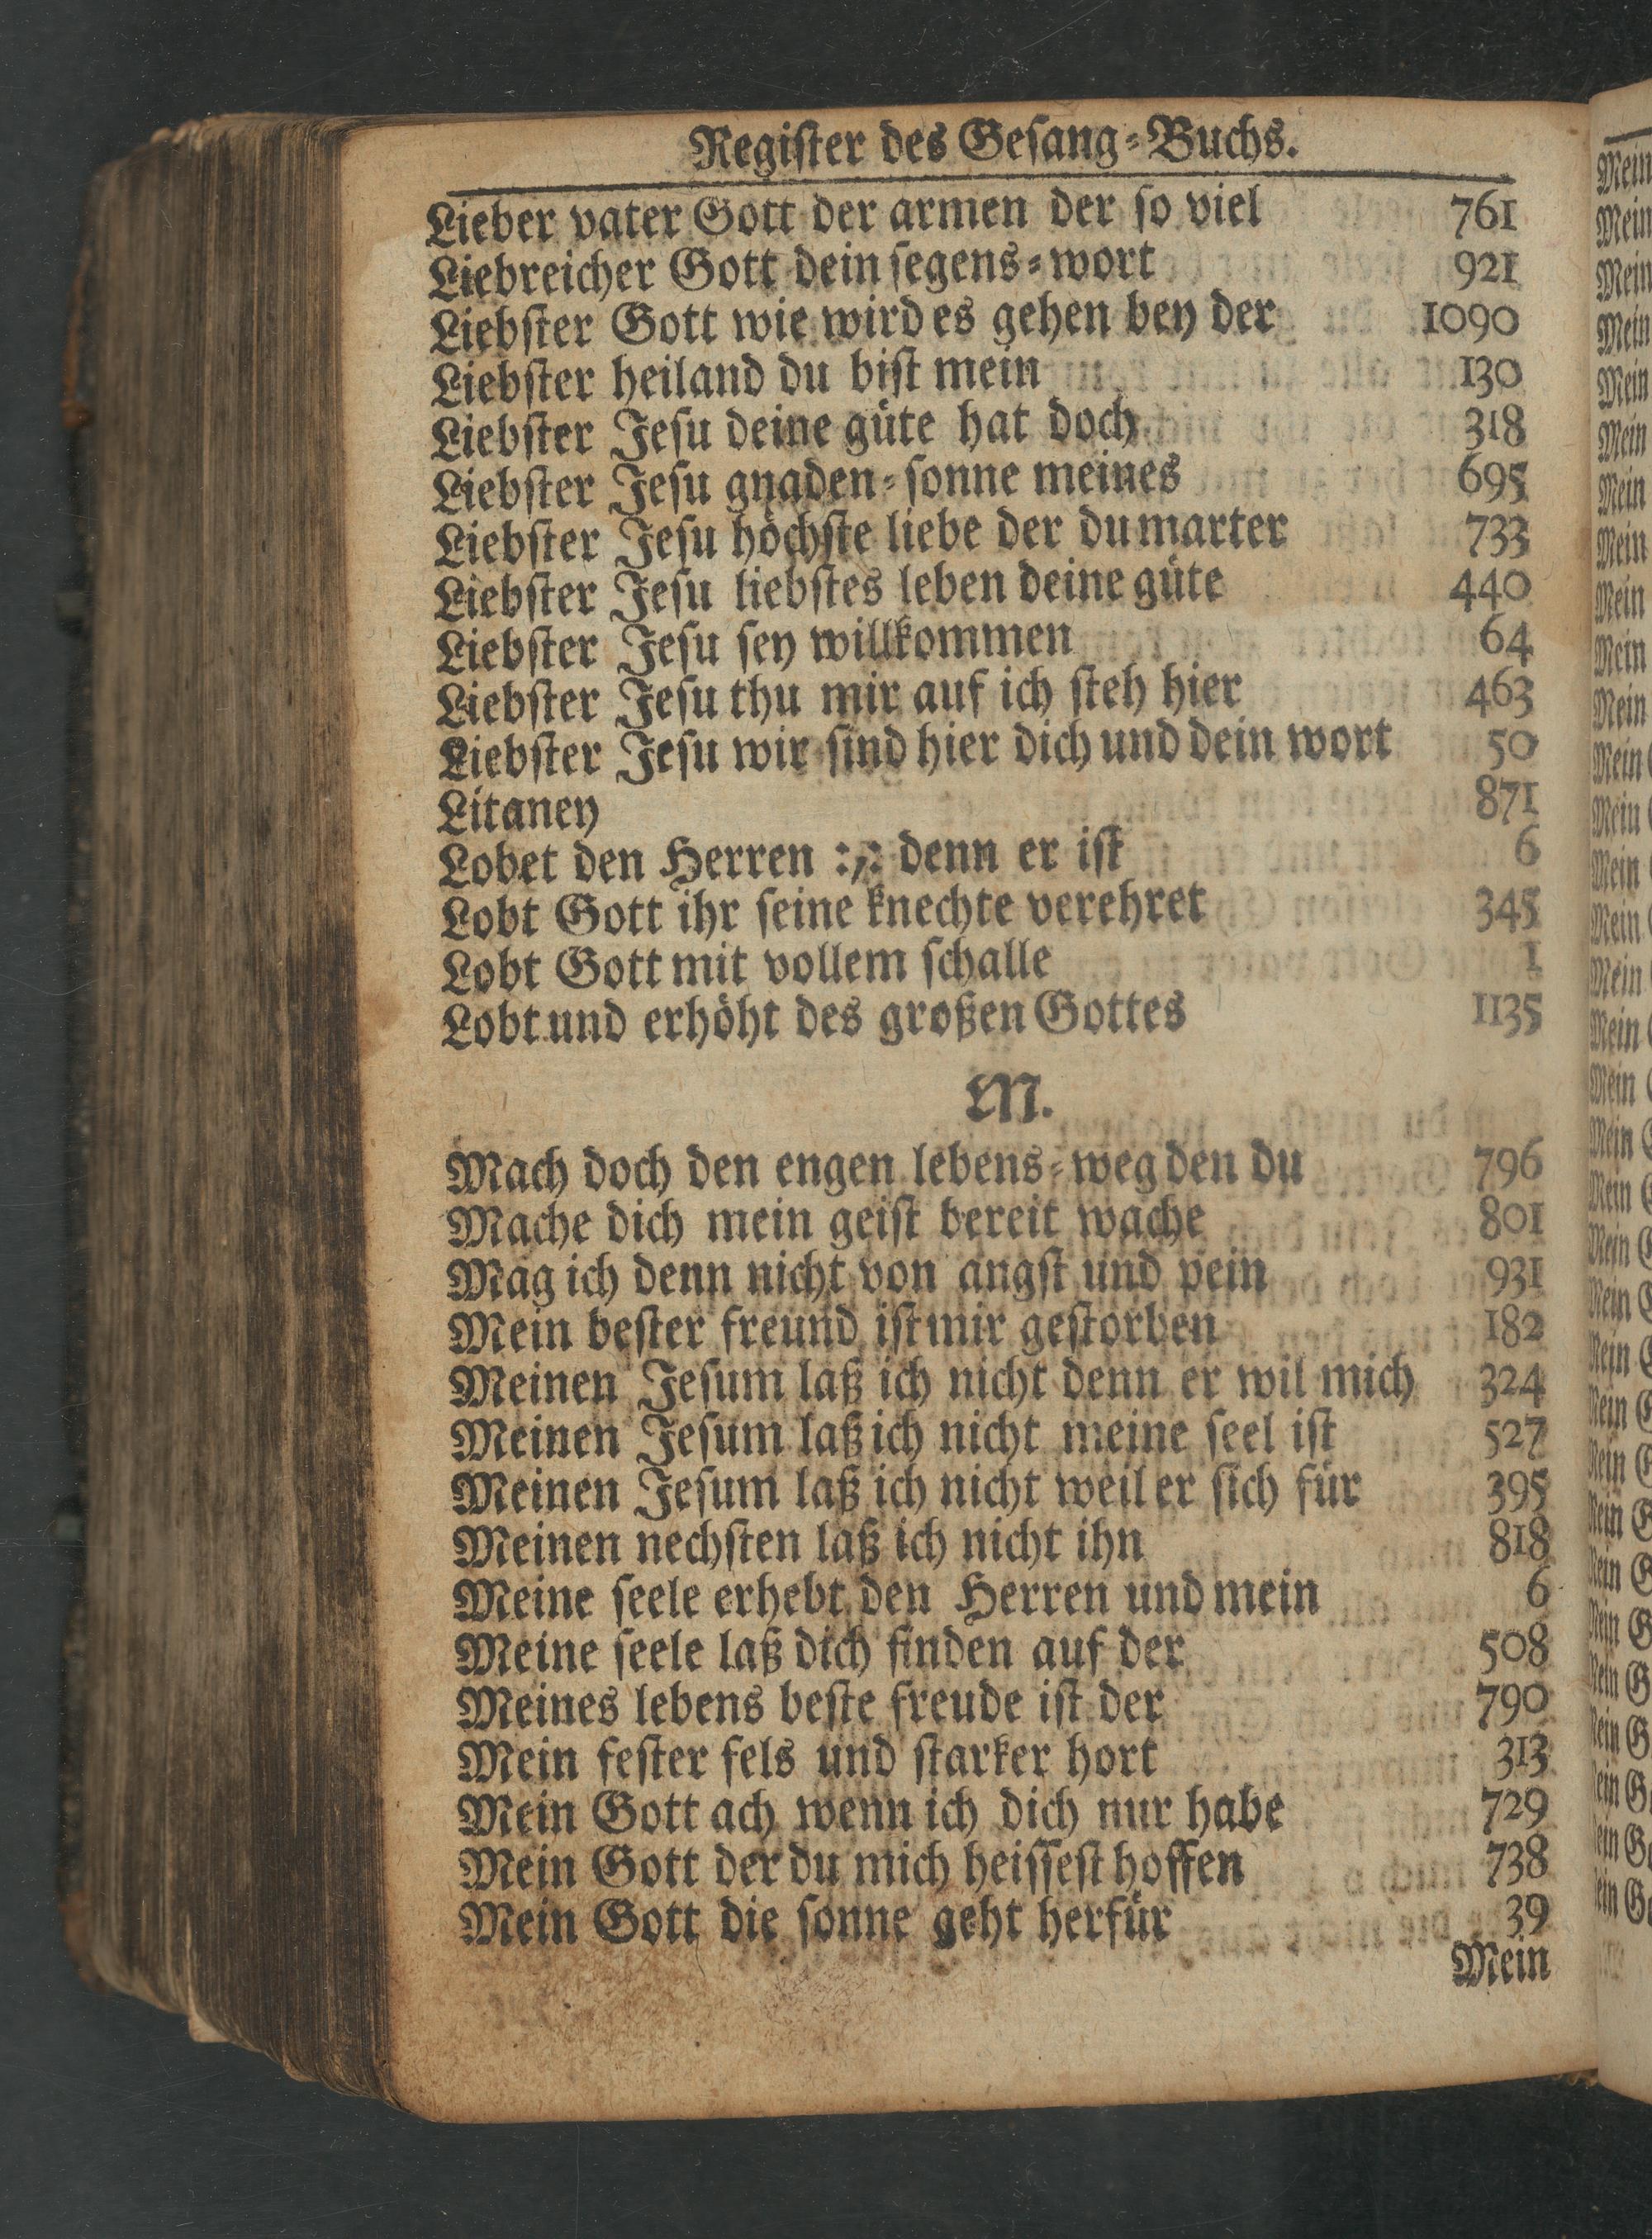 Register des Gesang-Buchs.
Lieber vater Gott der armen der so viel 761
Liebreicher Gott dein segens-wort 921
Liebster Gott wie wird es gehen bey der 1090
Liebster heiland du bist mein 130
Liebster Jesu deine güte hat doch 318
Liebster Jesu gnaden-sonne meines 695
Liebster Jesu höchste liebe der du marter 733
Liebster Jesu liebstes leben deine güte 440
Liebster Jesu sey willkommen 64
Liebster Jesu thu mir auf ich steh hier 463
Liebster Jesu wir sind hier dich und dein wort 50
Litaney 871
Lobet den Herren :,: denn er ist 6
Lobt Gott ihr seine knechte verehret 345
Lobt Gott mit vollem schalle 1
Lobt und erhöht des großen Gottes 1135
M.
Mach doch den engen lebens-weg den du 796
Mache dich mein geist bereit wache 801
Mag ich denn nicht von angst und pein 931
Mein bester freund ist mir gestorben 182
Meinen Jesum laß ich nicht denn er wil mich 324
Meinen Jesum laß ich nicht meine seel ist 527
Meinen Jesum laß ich nicht weil er sich für 395
Meinen nechsten laß ich nicht ihn 818
Meine seele erhebt den Herren und mein 6
Meine seele laß dich finden auf der 508
Meines lebens beste freude ist der 790
Mein fester fels und starker hort 313
Mein Gott ach wenn ich dich nur habe 729
Mein Gott der du mich heissest hoffen 738
Mein Gott die sonne geht herfür 39
Mein